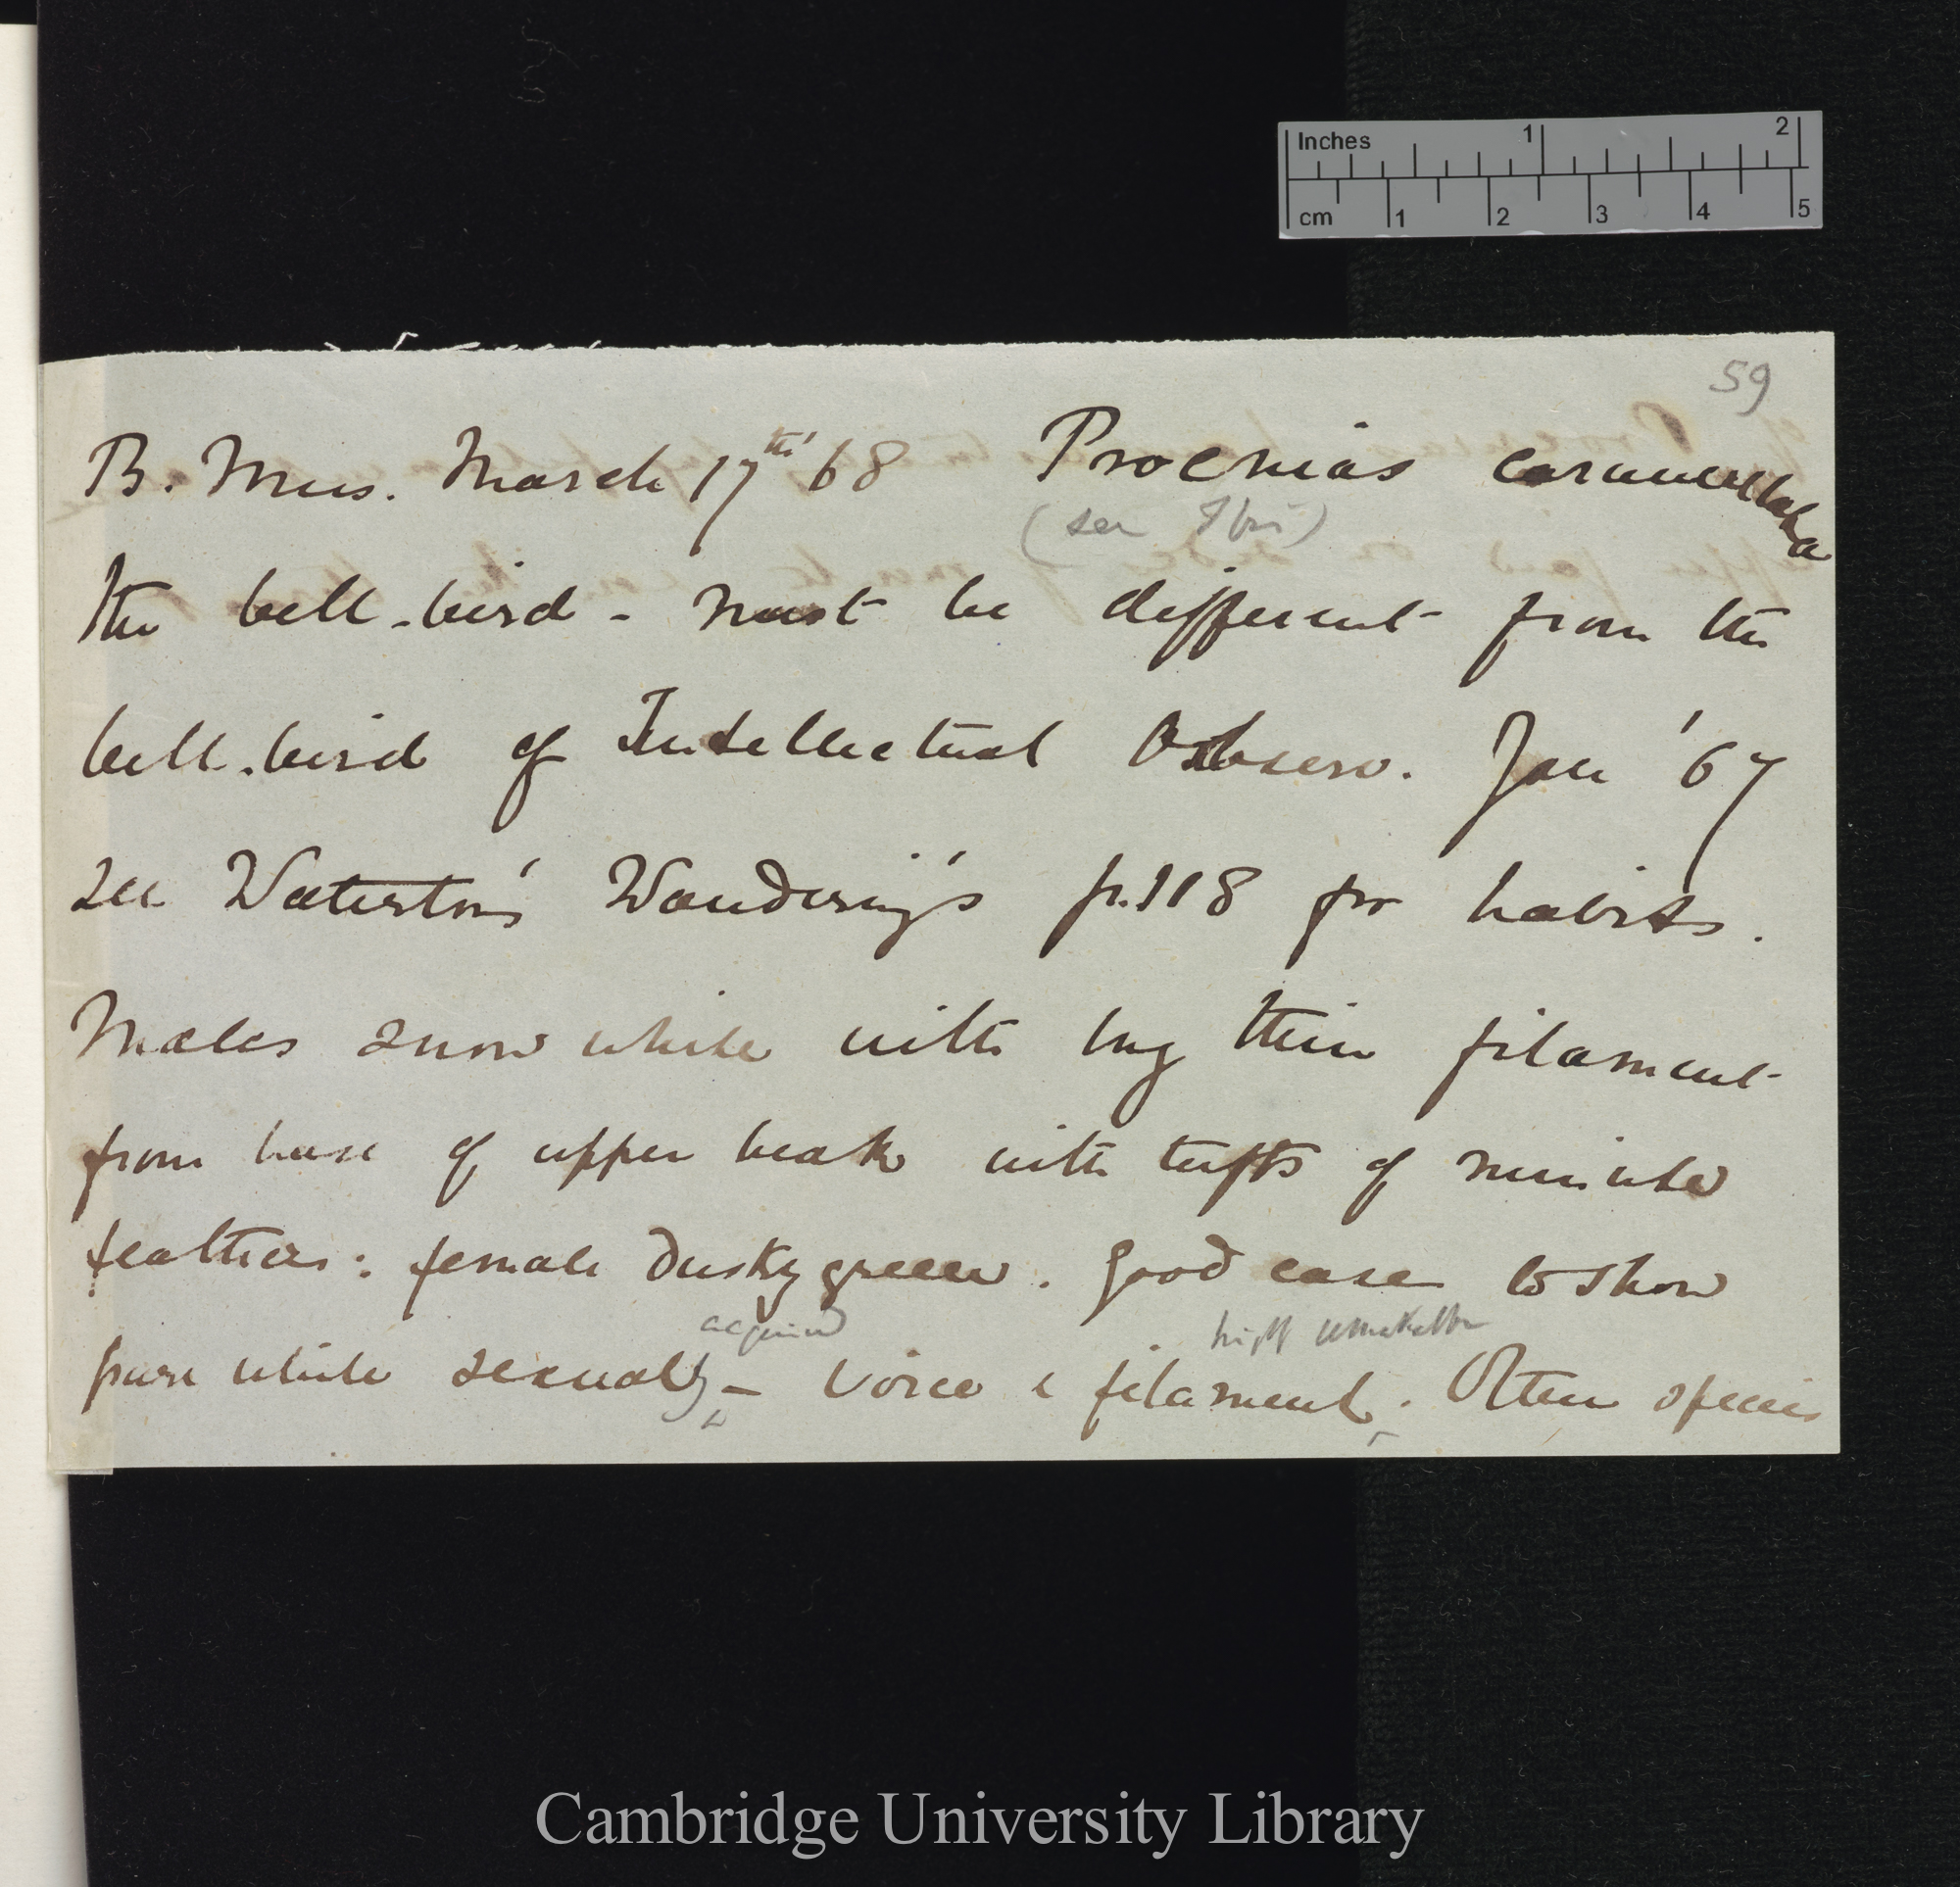 Inches 1 2
cm 1 2 3 4 5
59
B. Mus. March 17th '68 Procnias carunculata
(see Ibis)
the bell-bird - must be different from the
bell-bird of Intellectual Observ. Jan '67
see Waterton's Wandering's p.118 for habits.
Males snow white with long thin filament
from base of upper beak with tufts of minute
feathers: female dusky green. Good case to show
acquired high remarkable
pure white sexually — voice & filament. Other species
Cambridge University Library